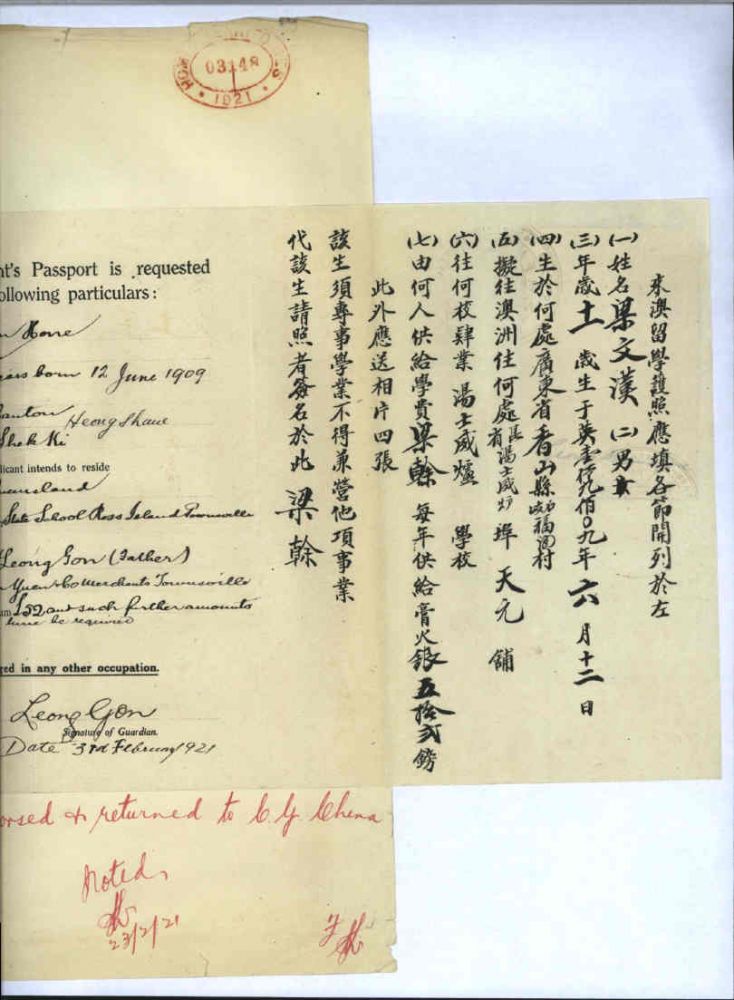 03148
1921
nt's Passport is requested
ollowing particulars:
Hone
ears born 12 June 1909
Canton Heong Shan
Shek Ki
licant intends to reside
eensland
State School Ross Island Townsville
Leong Gon (Father)
Yuen & Co Merchants Townsville
um £52 and such further amounts
be required
ed in any other occupation.
Leong Gon
Signature of Guardian.
Date 3rd February 1921
orsed & returned to C.G. China
Noted
23/2/21
來澳留學護照應填各節開列於左
(一)姓名 梁文漢 (二)男
(三)年歲 十一 歲生于英壹仟九佰〇九年 六 月十二日
(四)生於何處 廣東省香山縣 福涌村
(五)擬往澳洲住何處 省湯士威炉 埠 天元 舖
(六)往何校肄業 湯士威爐 學校
(七)由何人供給學費 梁幹 每年供給膏火銀 五拾弍 鎊
此外應送相片四張
該生須專事學業不得兼營他項事業
代該生請照者簽名於此 梁幹